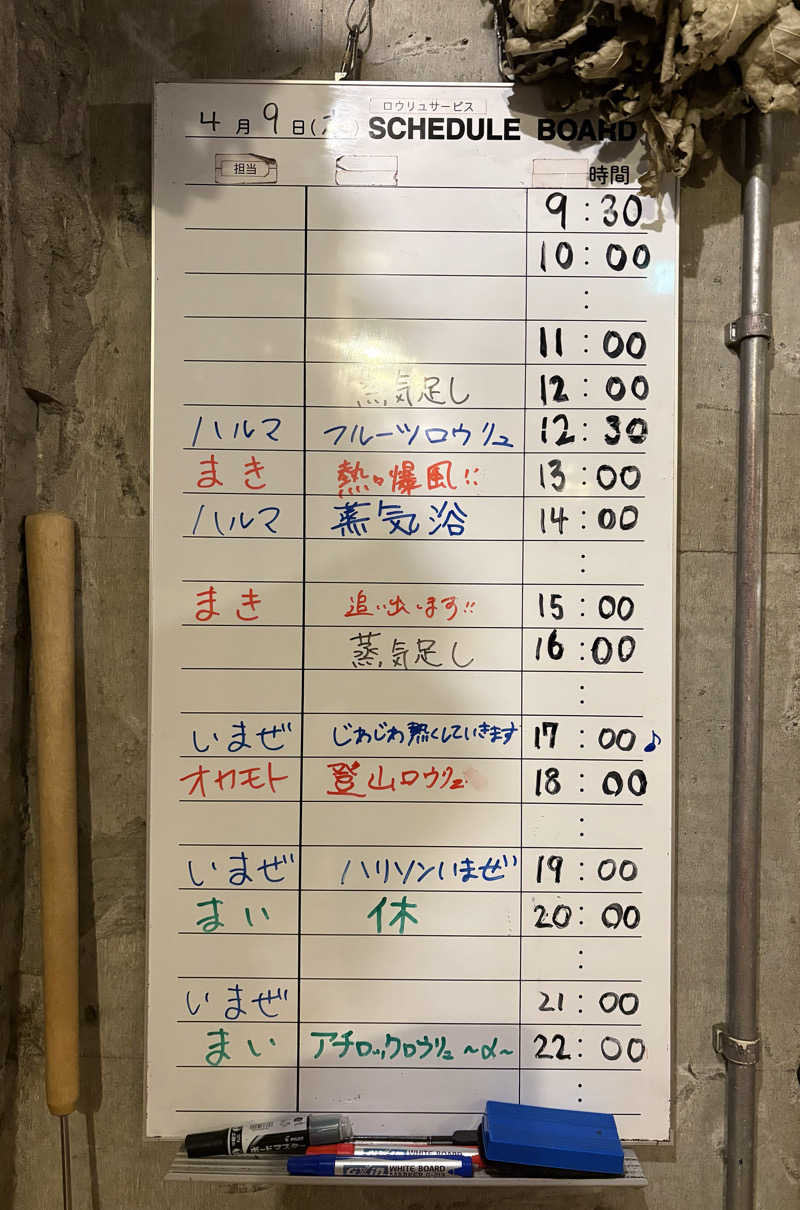 ロウリュサービス
4月9日( ) SCHEDULE BOARD
担当 時間
9:30
10:00
:
11:00
蒸気足し 12:00
ハルマ フルーツロウリュ 12:30
まき 熱々爆風!! 13:00
ハルマ 蒸気浴 14:00
:
まき 追い出います!! 15:00
蒸気足し 16:00
:
いまぜ じわじわ熱くしていきます 17:00♪
オカモト 登山ロウリュ 18:00
:
いまぜ ハリソンいまぜ 19:00
まい 休 20:00
:
いまぜ 21:00
まい アチロックロウリュ ~α~ 22:00
:
WHITE BOARD
WHITE BOARD